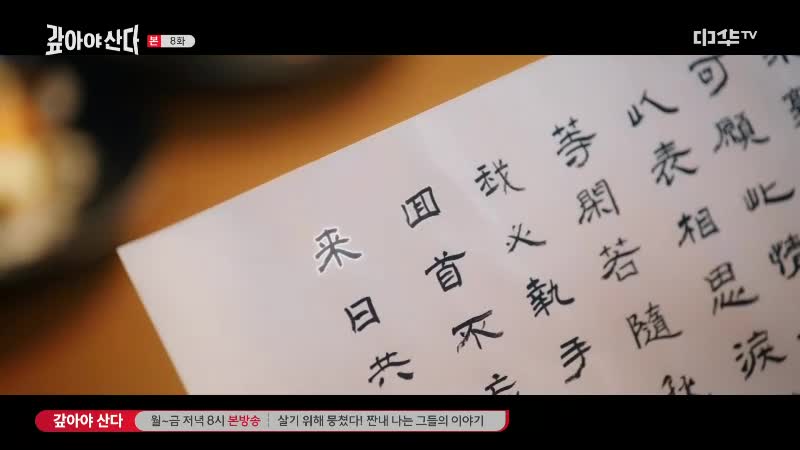 갚아야 산다
본 8화
中华TV
可願此情
以表相思淚
等閑若隨
我必執手
回首不忘
来日共
갚아야 산다
월~금 저녁 8시 본방송
살기 위해 뭉쳤다! 짠내 나는 그들의 이야기